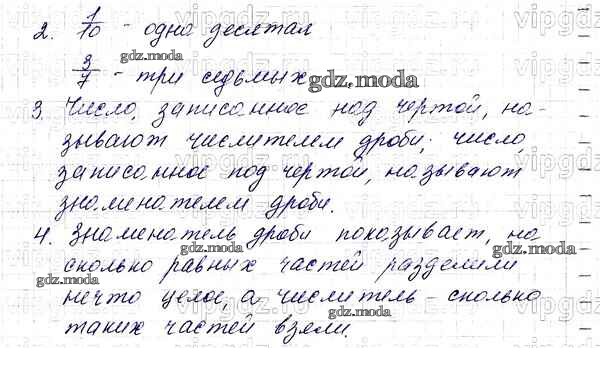 2. 1/10 - одна десятая
3/7 - три седьмых
3. Число, записанное над чертой, на-
зывают числителем дроби; число,
записанное под чертой, называют
знаменателем дроби.
4. Знаменатель дроби показывает, на
сколько равных частей разделили
нечто целое, а числитель - сколько
таких частей взяли.
gdz.moda
gdz.moda
gdz.moda
gdz.moda
gdz.moda
gdz.moda
gdz.moda